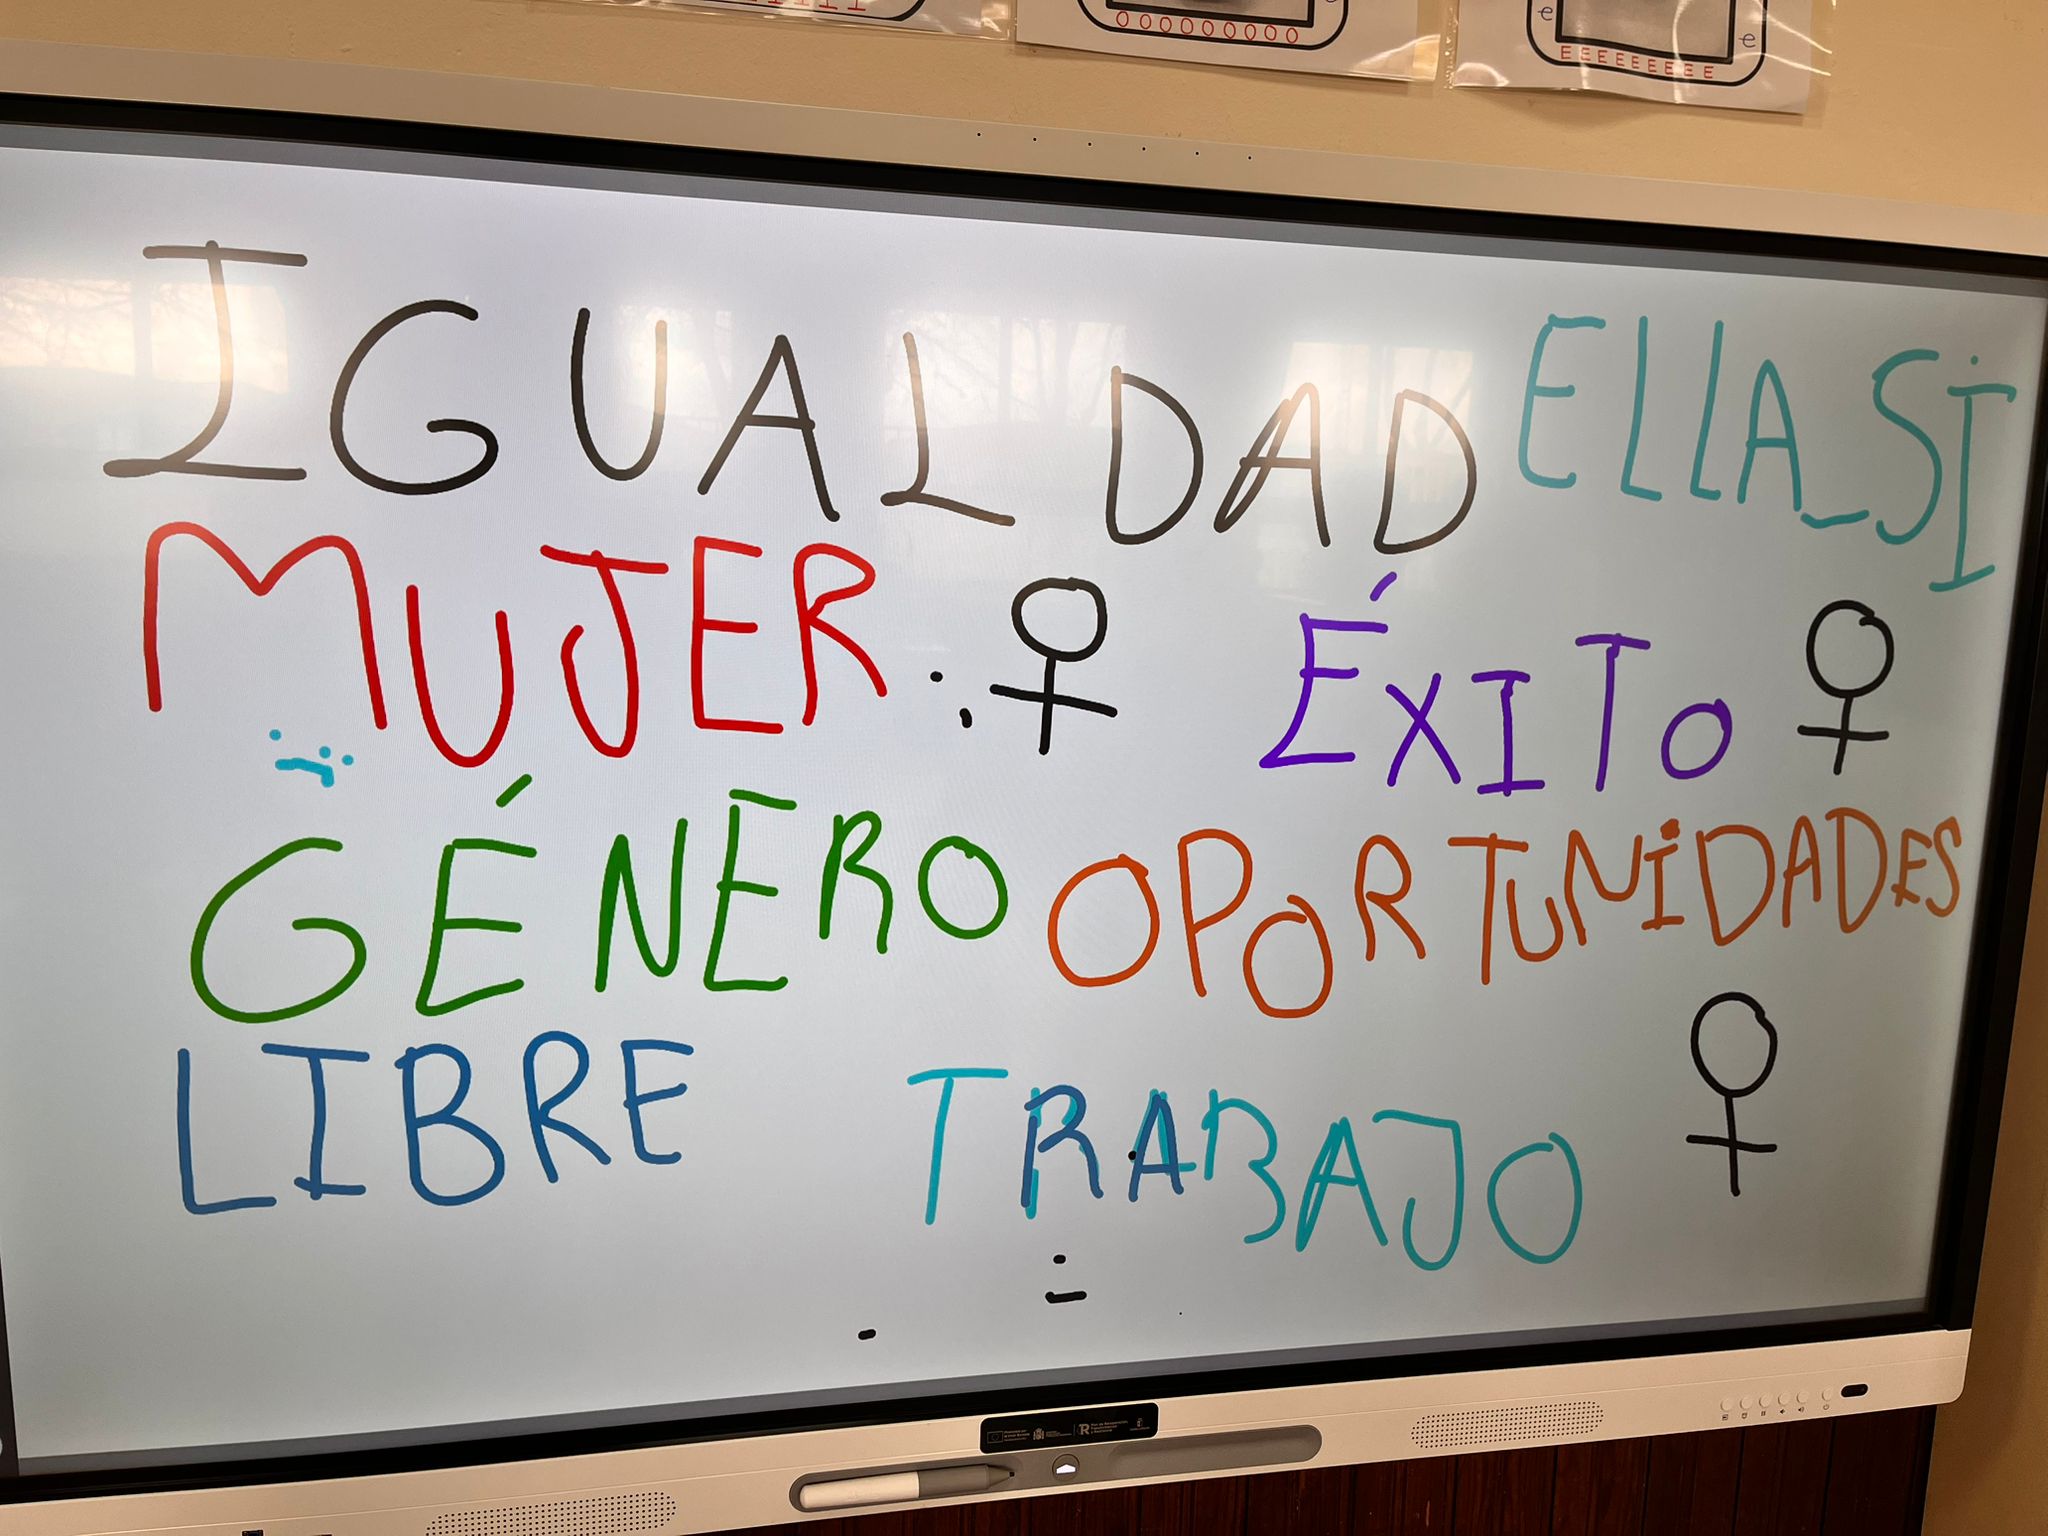 OOOOOOOOO
e
EEEEEEEEE
e
IGUALDAD ELLA_SI
MUJER : ♀ ÉXITO ♀
GÉNERO OPORTUNIDADES
LIBRE TRABAJO ♀